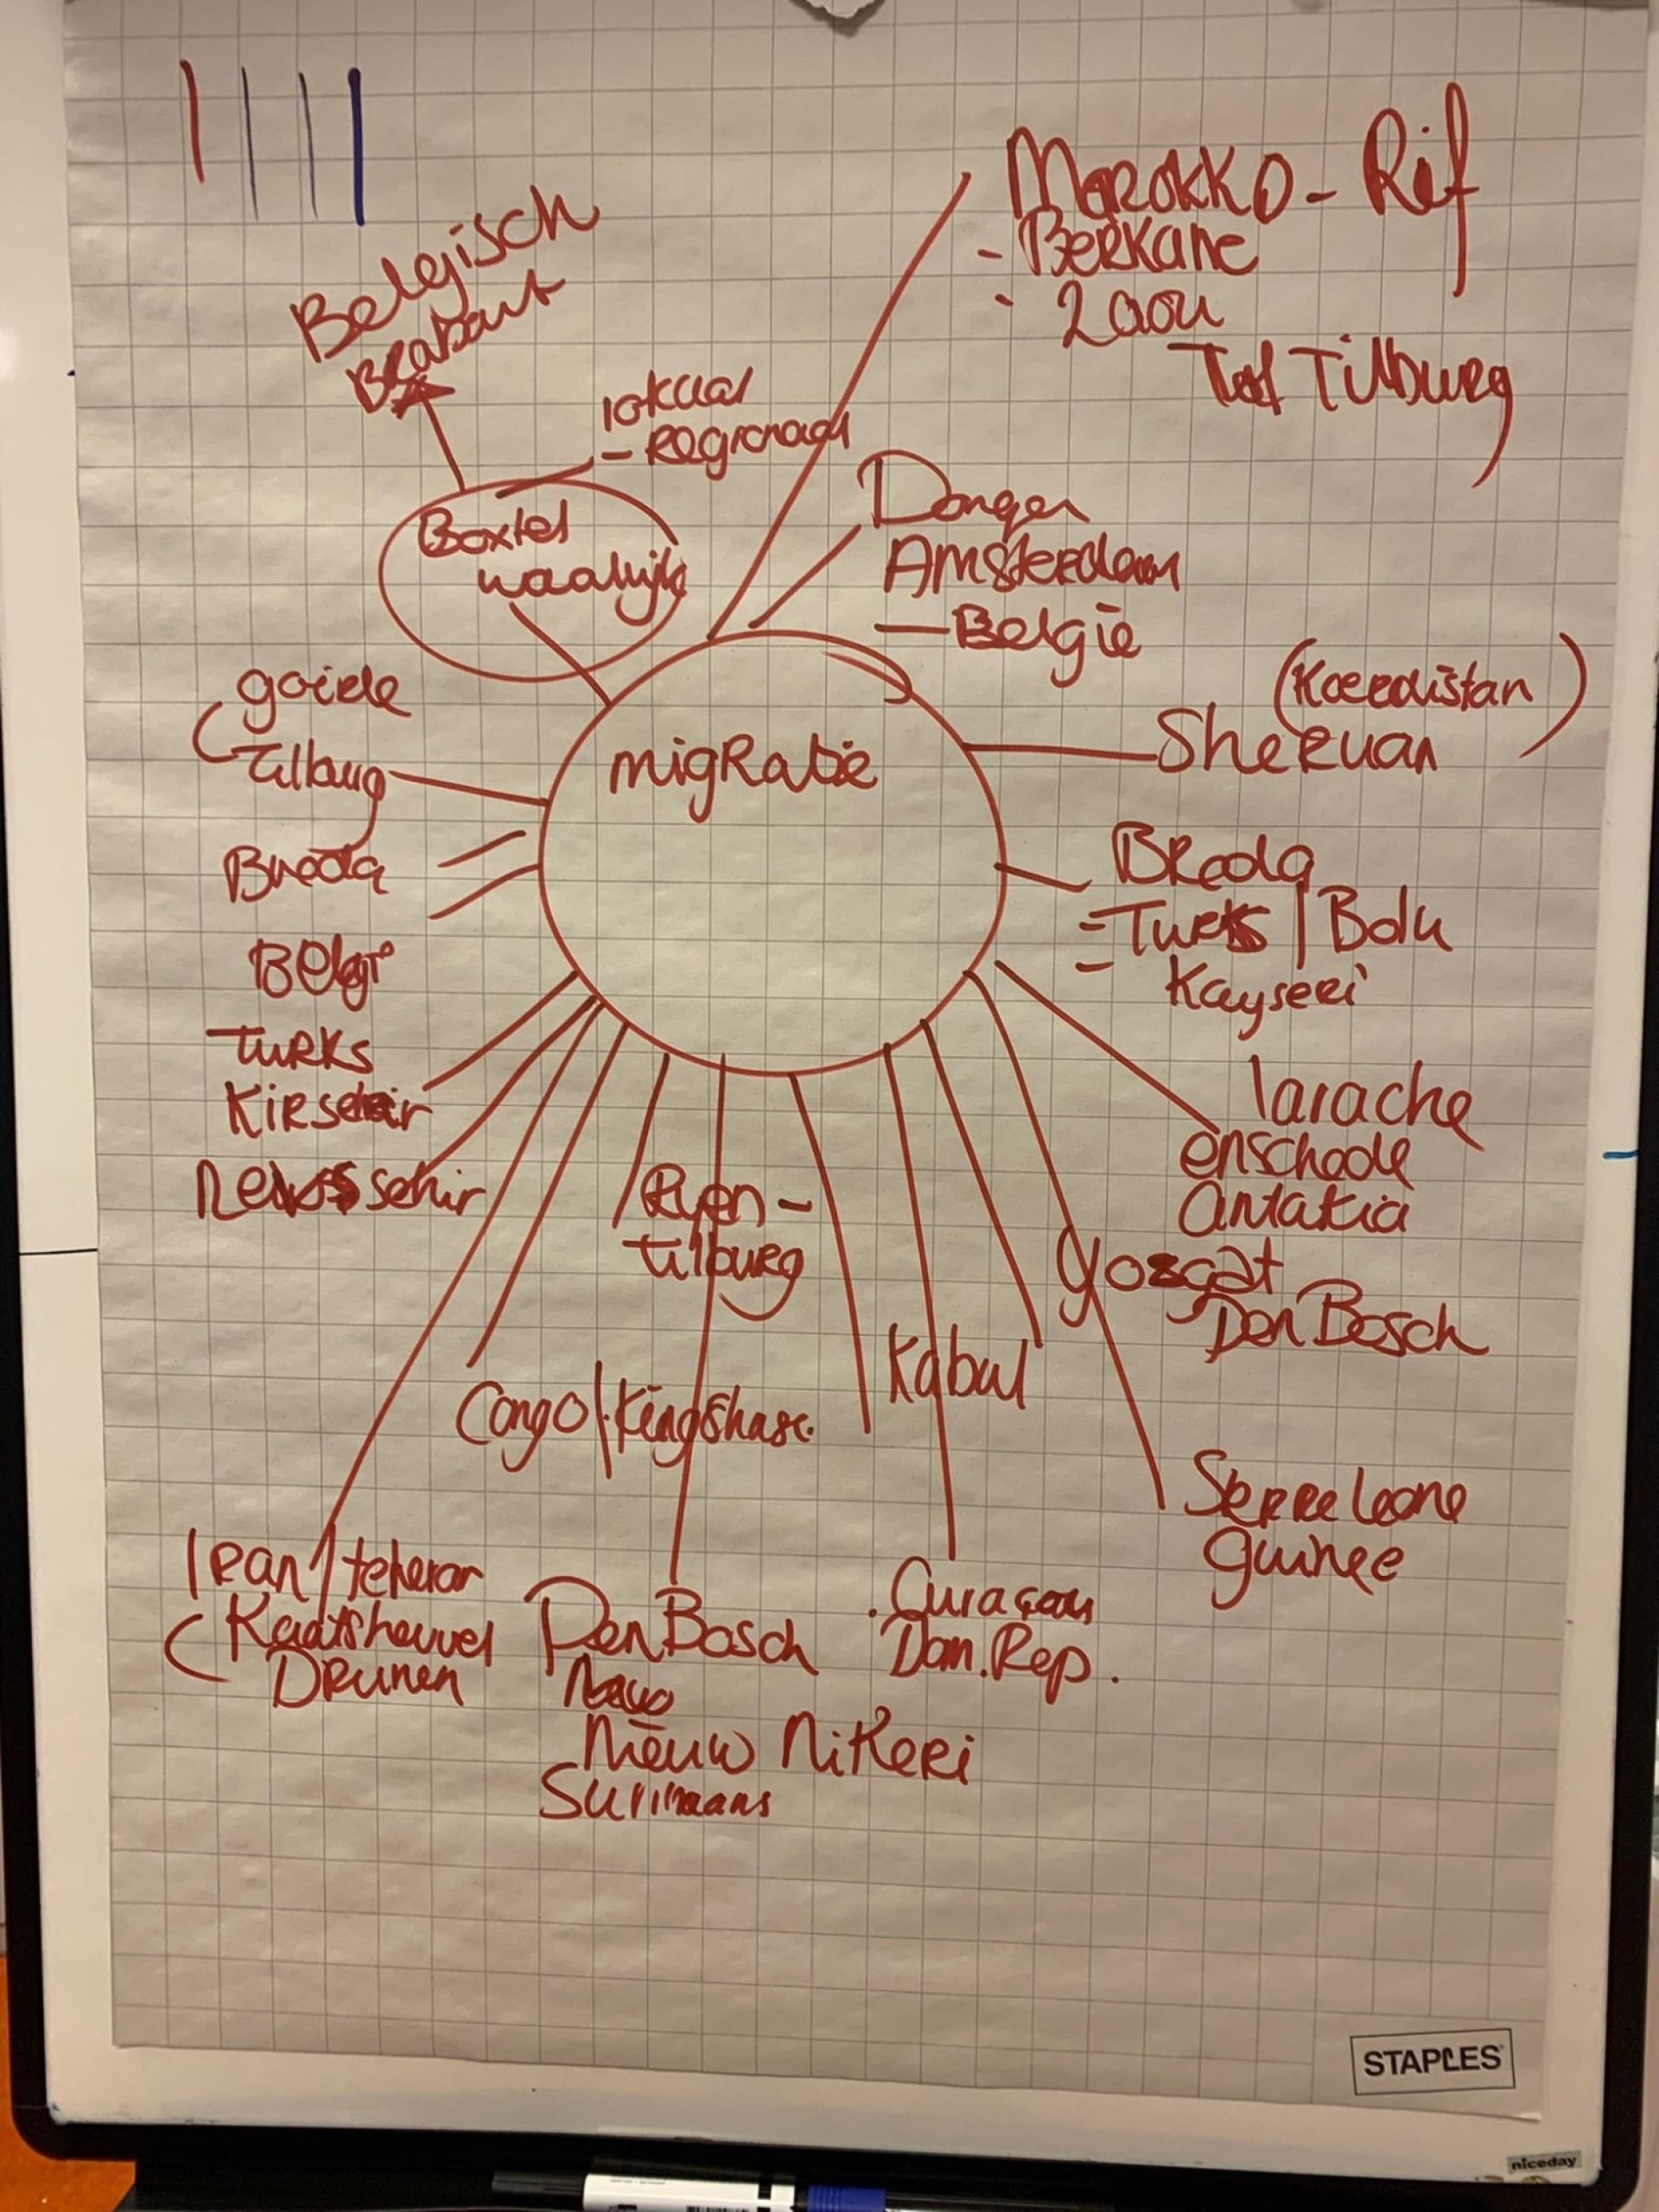 Marokko - Rif
- Berkane
- 2aou
Tilburg
Belgisch
Brabant
lokaal
- Regionaal
Boxtel
waalwijk
Dongen
Amsterdam
- België
(Koerdistan)
Sheruan
migratie
goirle
Tilburg
Breda
Breda
= Turks | Bolu
- Kayseri
Belgi
Turks
Kirsehir
sehir
larache
enschede
antakia
Ryen -
tilburg
yozgat
Den Bosch
Kabul
Congo | Kingshasa.
Serre leone
guinee
Iran / teheran
Kaatsheuvel
Drunen
Den Bosch
Nieuw Nikeri
Surinaams
. Curaçau
Dom. Rep.
STAPLES
niceday